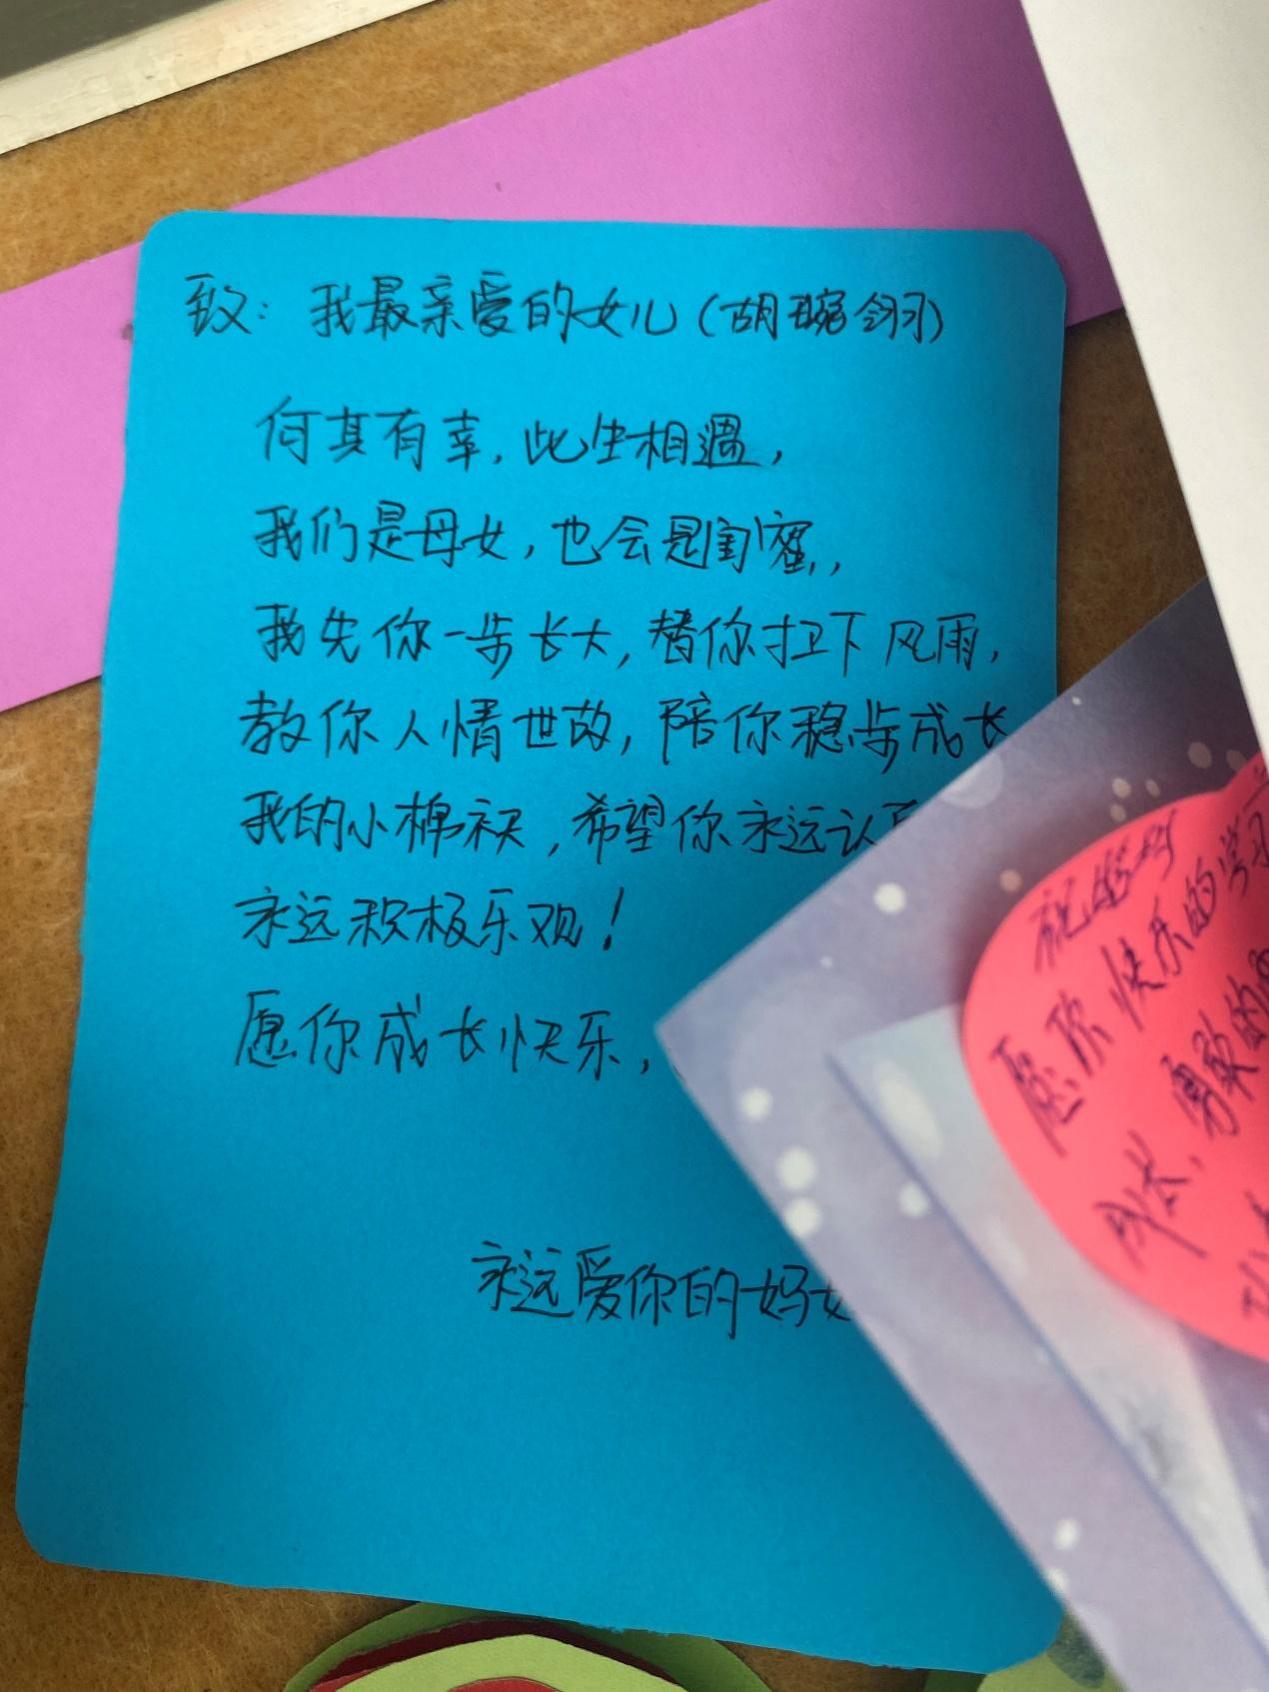 致：我最亲爱的女儿（胡琬翎）
何其有幸，此生相遇，
我们是母女，也会是闺蜜，
我先你一步长大，替你扛下风雨，
教你人情世故，陪你稳步成长
我的小棉袄，希望你永远认
永远积极乐观！
愿你成长快乐，
永远爱你的妈
愿你快乐的学习
成长，勇敢的